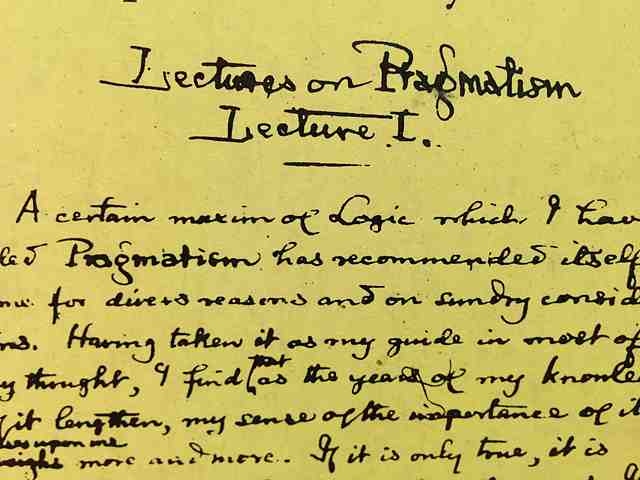 Lectures on Pragmatism
Lecture I.
A certain maxim of Logic which I have
led Pragmatism has recommended itself
me for divers reasons and on sundry consid
ns. Having taken it as my guide in most of
y thought, I find that as the years of my knowle
it lengthen, my sense of the importance of it
upon me
weighs more and more. If it is only true, it is